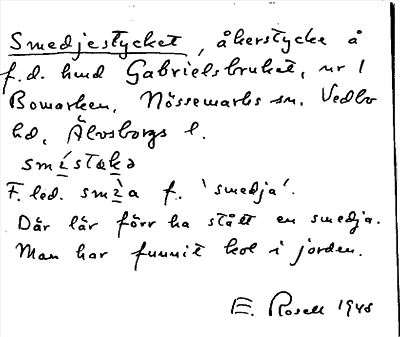 Smedjestycket, åkerstycke å
f.d. hmd Gabrielsbruket, nr 1
Bomarken, Nössemarks sn. Vedbo
hd, Älvsborgs l.
F. led. f. 'smedja'.
Där lär förr ha stått en smedja.
Man har funnit kol i jorden.
E. Rosell 1945